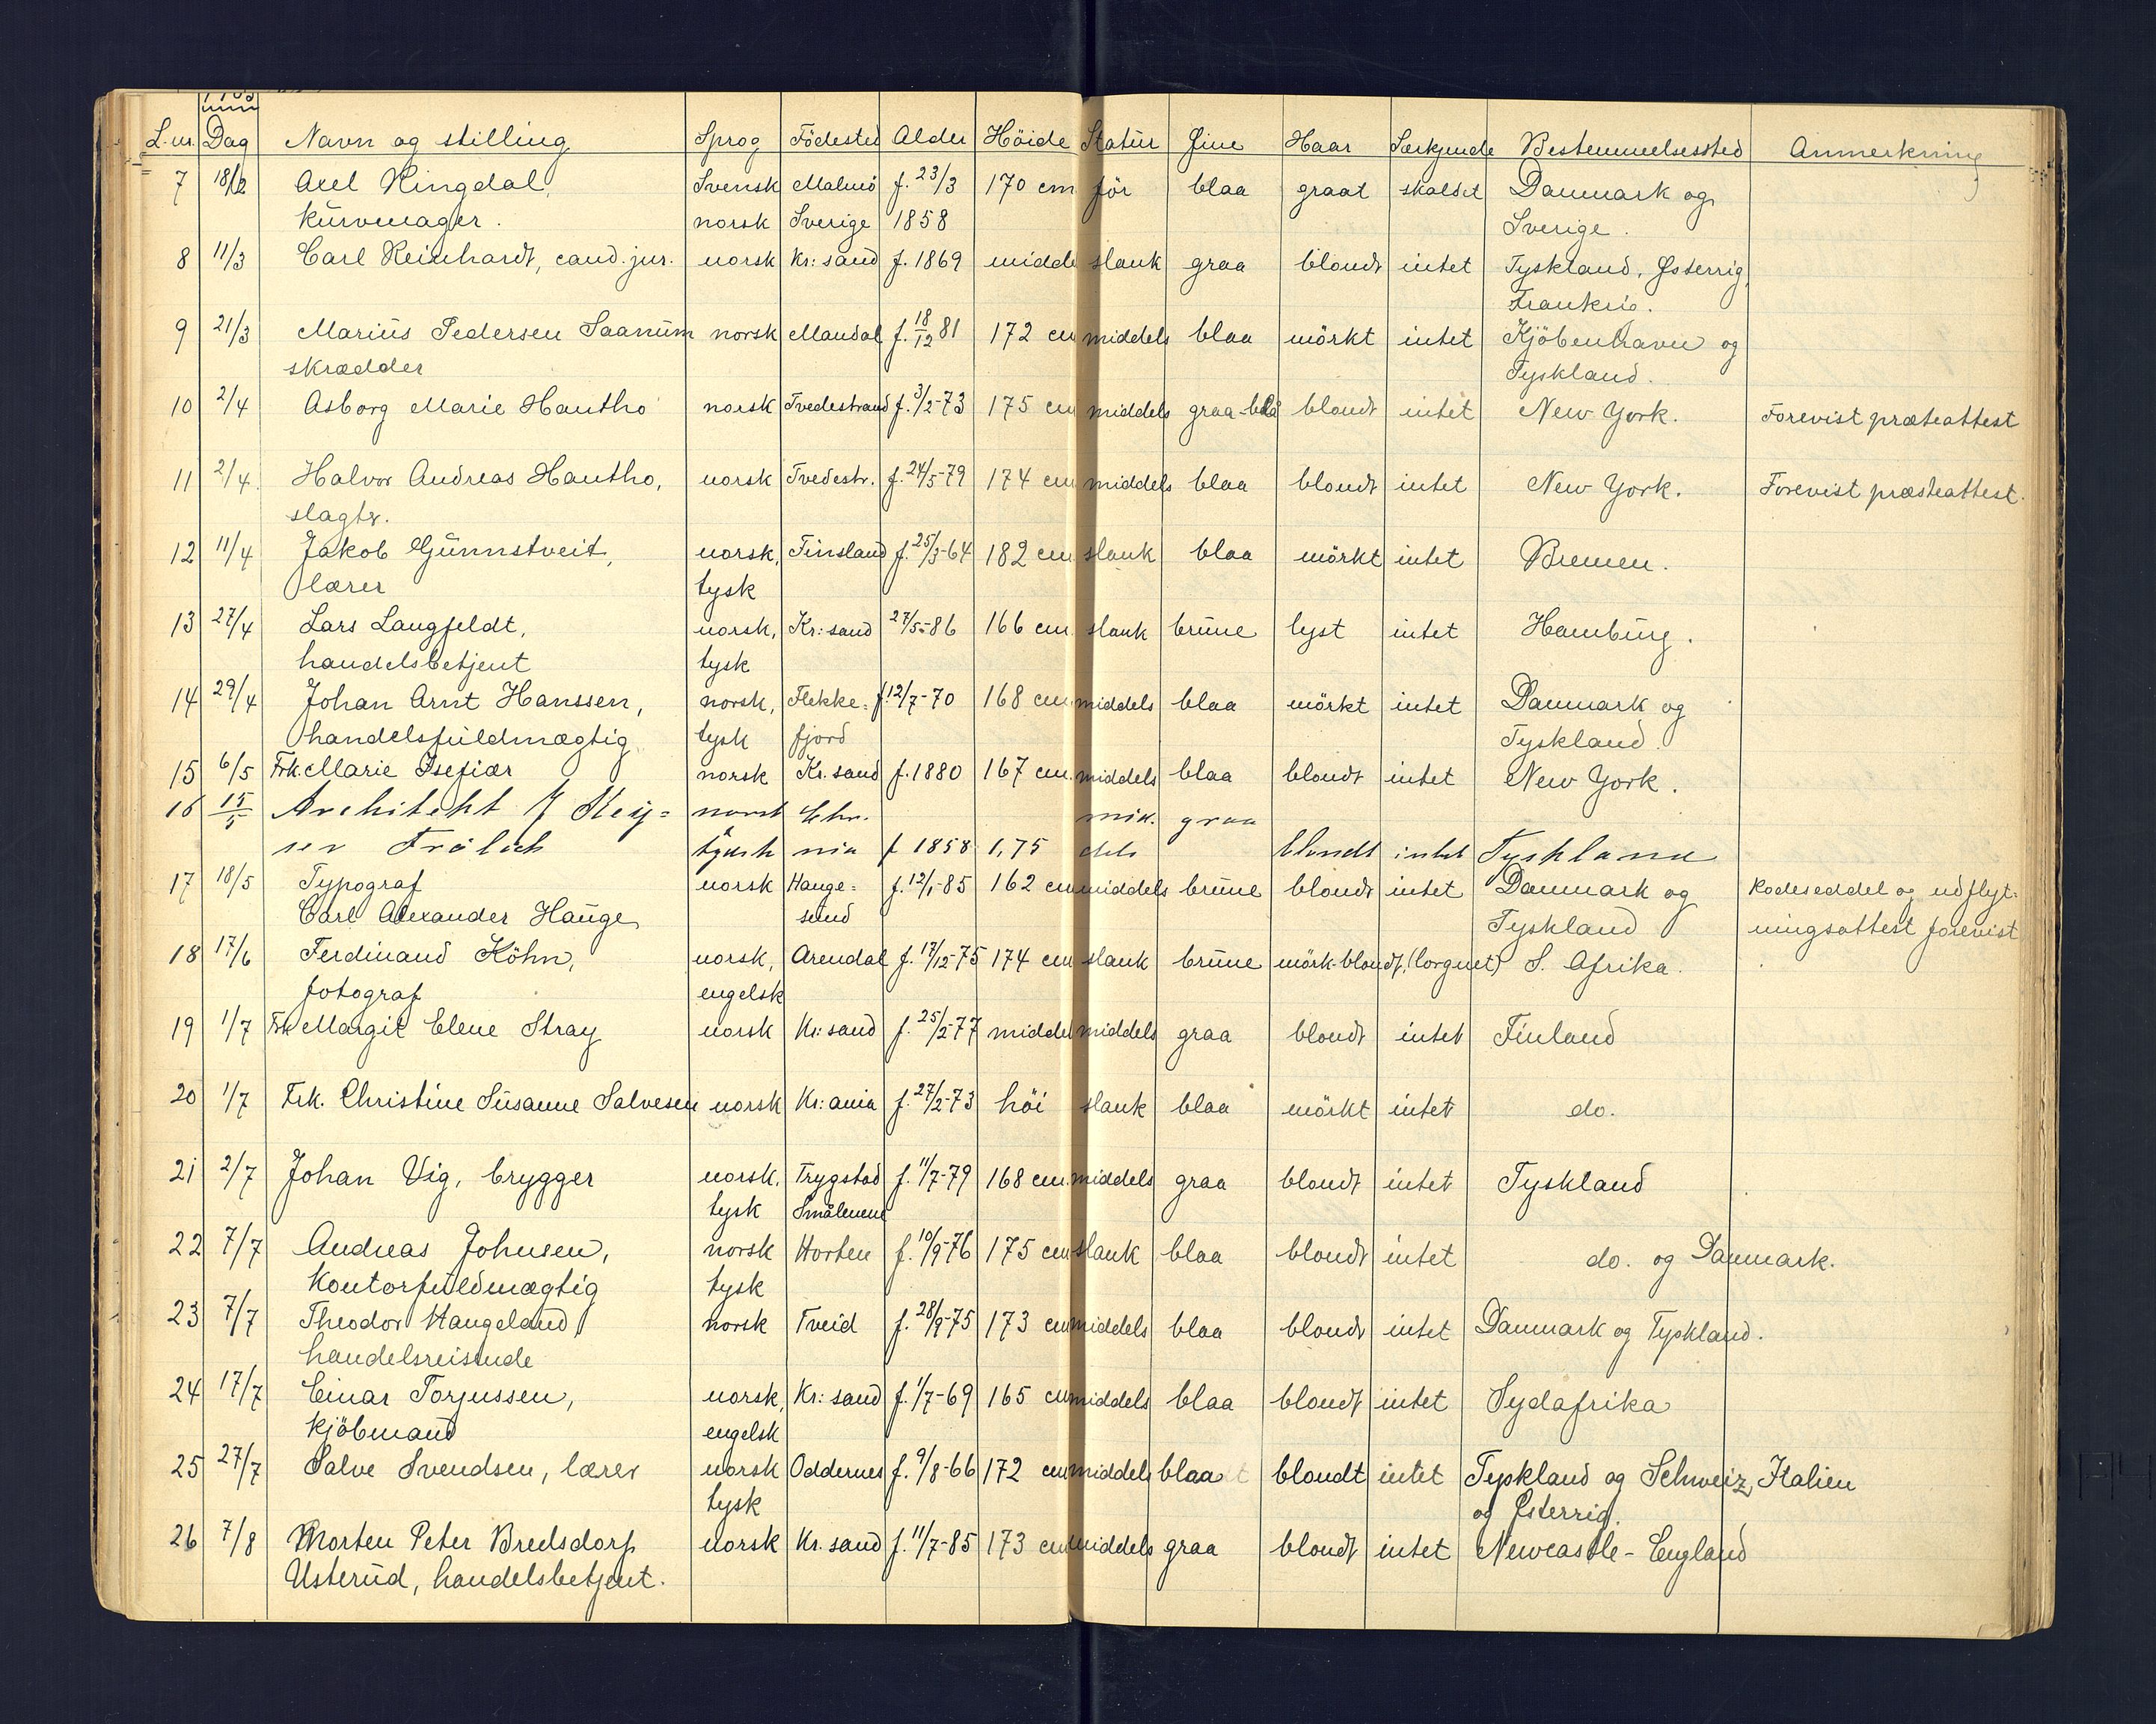 L. nr. Dag Navn og stilling Sprog Födested Alder Höide Statur Øine Haar Særkjende Bestemmelsessted Anmerkning
7 18/2 Axel Ringdal, Svensk Malmö f. 23/3 170 cm för blaa graat skaldet Danmark og
kurvmager. norsk Sverige 1858 Sverige.
8 11/3 Carl Reinhardt, cand. jur. norsk Kr:sand f. 1869 middels slank graa blondt intet Tyskland, Østerrig,
Frankri.
9 21/3 Marius Pedersen Saanum norsk Mandal f. 18/12 81 172 cm middels blaa mörkt intet Kjöbenhavn og
skrædder Tyskland.
10 2/4 Asborg Marie Hantho norsk Tvedestrand f. 3/2-73 175 cm middels graa-blå blondt intet New York. Forevist præsteattest
11 2/4 Halvor Andreas Hantho, norsk Tvedestr. f. 24/5-79 174 cm middels blaa blondt intet New York. Forevist præsteattest.
slagter.
12 11/4 Jakob Gunnstveit, norsk, Finsland f. 25/3-64 182 cm slank blaa mörkt intet Bremen.
lærer tysk
13 27/4 Lars Langfeldt, norsk, Kr:sand 27/5-86 166 cm slank brune lyst intet Hamburg.
handelsbetjent tysk
14 29/4 Johan Arnt Hanssen, norsk, Flekke= f. 12/7-70 168 cm middels blaa mörkt intet Danmark og
handelsfuldmægtig tysk fjord Tyskland.
15 6/5 Frk. Marie Isefiær norsk Kr. sand f. 1880 167 cm. middels blaa blondt intet New York.
16 15/5 Architekt J Key= norsk Chr. mid. graa
ser Frölich tysk nia f 1858 1,75 dels blondt intet Tyskland
17 18/5 Typograf norsk Hauge= f. 12/1-85 162 cm middels brune blondt intet Danmark og Rodeseddel og udflyt-
Carl Alexander Hauge sund Tyskland ningsattest forevist
18 17/6 Ferdinand Köhn, norsk, Arendal f. 17/12-75 174 cm slank brune mörk-blondt, (lorgnet) S. Afrika.
fotograf engelsk
19 1/7 Frk Margit Elene Stray norsk Kr:sand f. 25/2-77 middels middels graa blondt intet Finland
20 1/7 Frk. Christine Susanne Salvesen norsk Kr:ania f. 27/2-73 höi slank blaa mörkt intet do.
21 2/7 Johan Vig, brygger norsk, Trygstad f. 11/7-79 168 cm. middels graa blondt intet Tyskland
tysk Smålenene
22 7/7 Andreas Johnsen, norsk Horten f. 10/9-76 175 cm slank blaa blondt intet do. og Danmark.
Kontorfuldmægtig tysk
23 7/7 Theodor Haugeland, norsk Tveid f. 28/9-75 173 cm middels blaa blondt intet Danmark og Tyskland.
handelsreisende
24 17/7 Einar Torjussen, norsk, Kr:sand f. 1/7-69 165 cm middels blaa blondt intet Sydafrika
kjöbmand engelsk
25 27/7 Salve Svendsen, lærer norsk Oddernes f. 9/8-66 172 cm middels blaa blondt intet Tyskland og Schweiz, Italien
tysk og Østerrig.
26 7/8 Morten Peter Bredsdorf norsk Kr. sand f. 11/7-85 173 cm middels graa blondt intet Newcastle - England
Usterud, handelsbetjent.